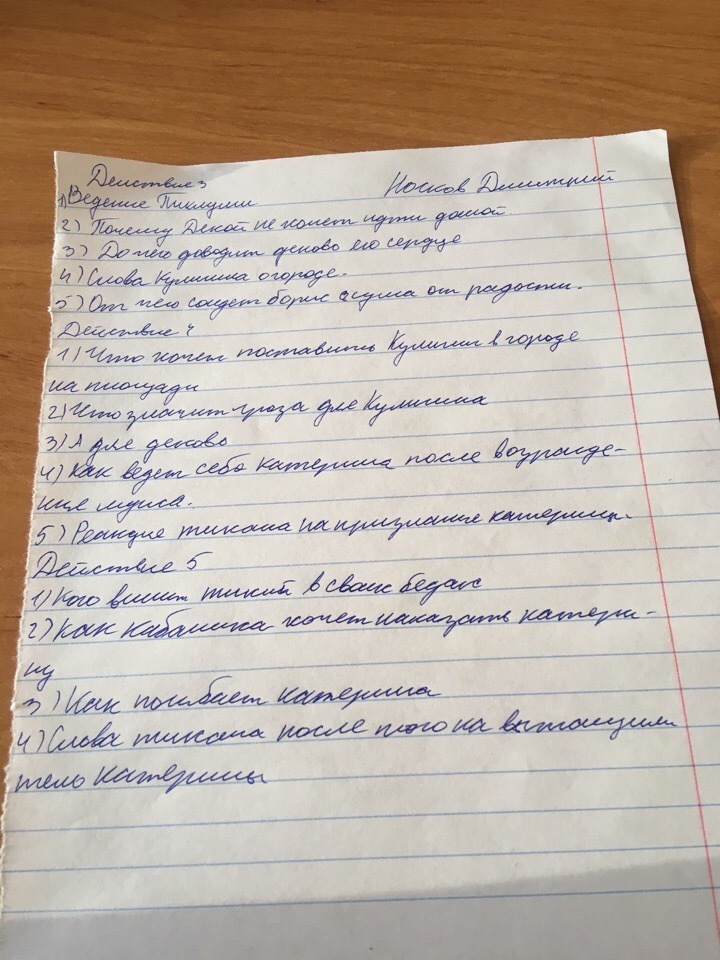 Действие 3
Носков Дмитрий
1) Ведение Фиклуши
2) Почему Декой не хочет идти домой
3) До чего доводит деково его сердце
4) Слова Кулигина огороде.
5) От чего сойдет борис сума от радости.
Действие 4
1) Что хочет поставить Кулигин в городе
на площади
2) Что значит гроза для Кулигина
3) А для деково
4) Как ведет себя катерина после возражде-
ние мужа.
5) Реакция тихона на признание катерины.
Действие 5
1) Кого винит тихий в своих бедах
2) Как кабаниха хочет наказать катери-
ну
3) Как погибает катерина
4) Слова тихона после того на вытащили
тело катерины